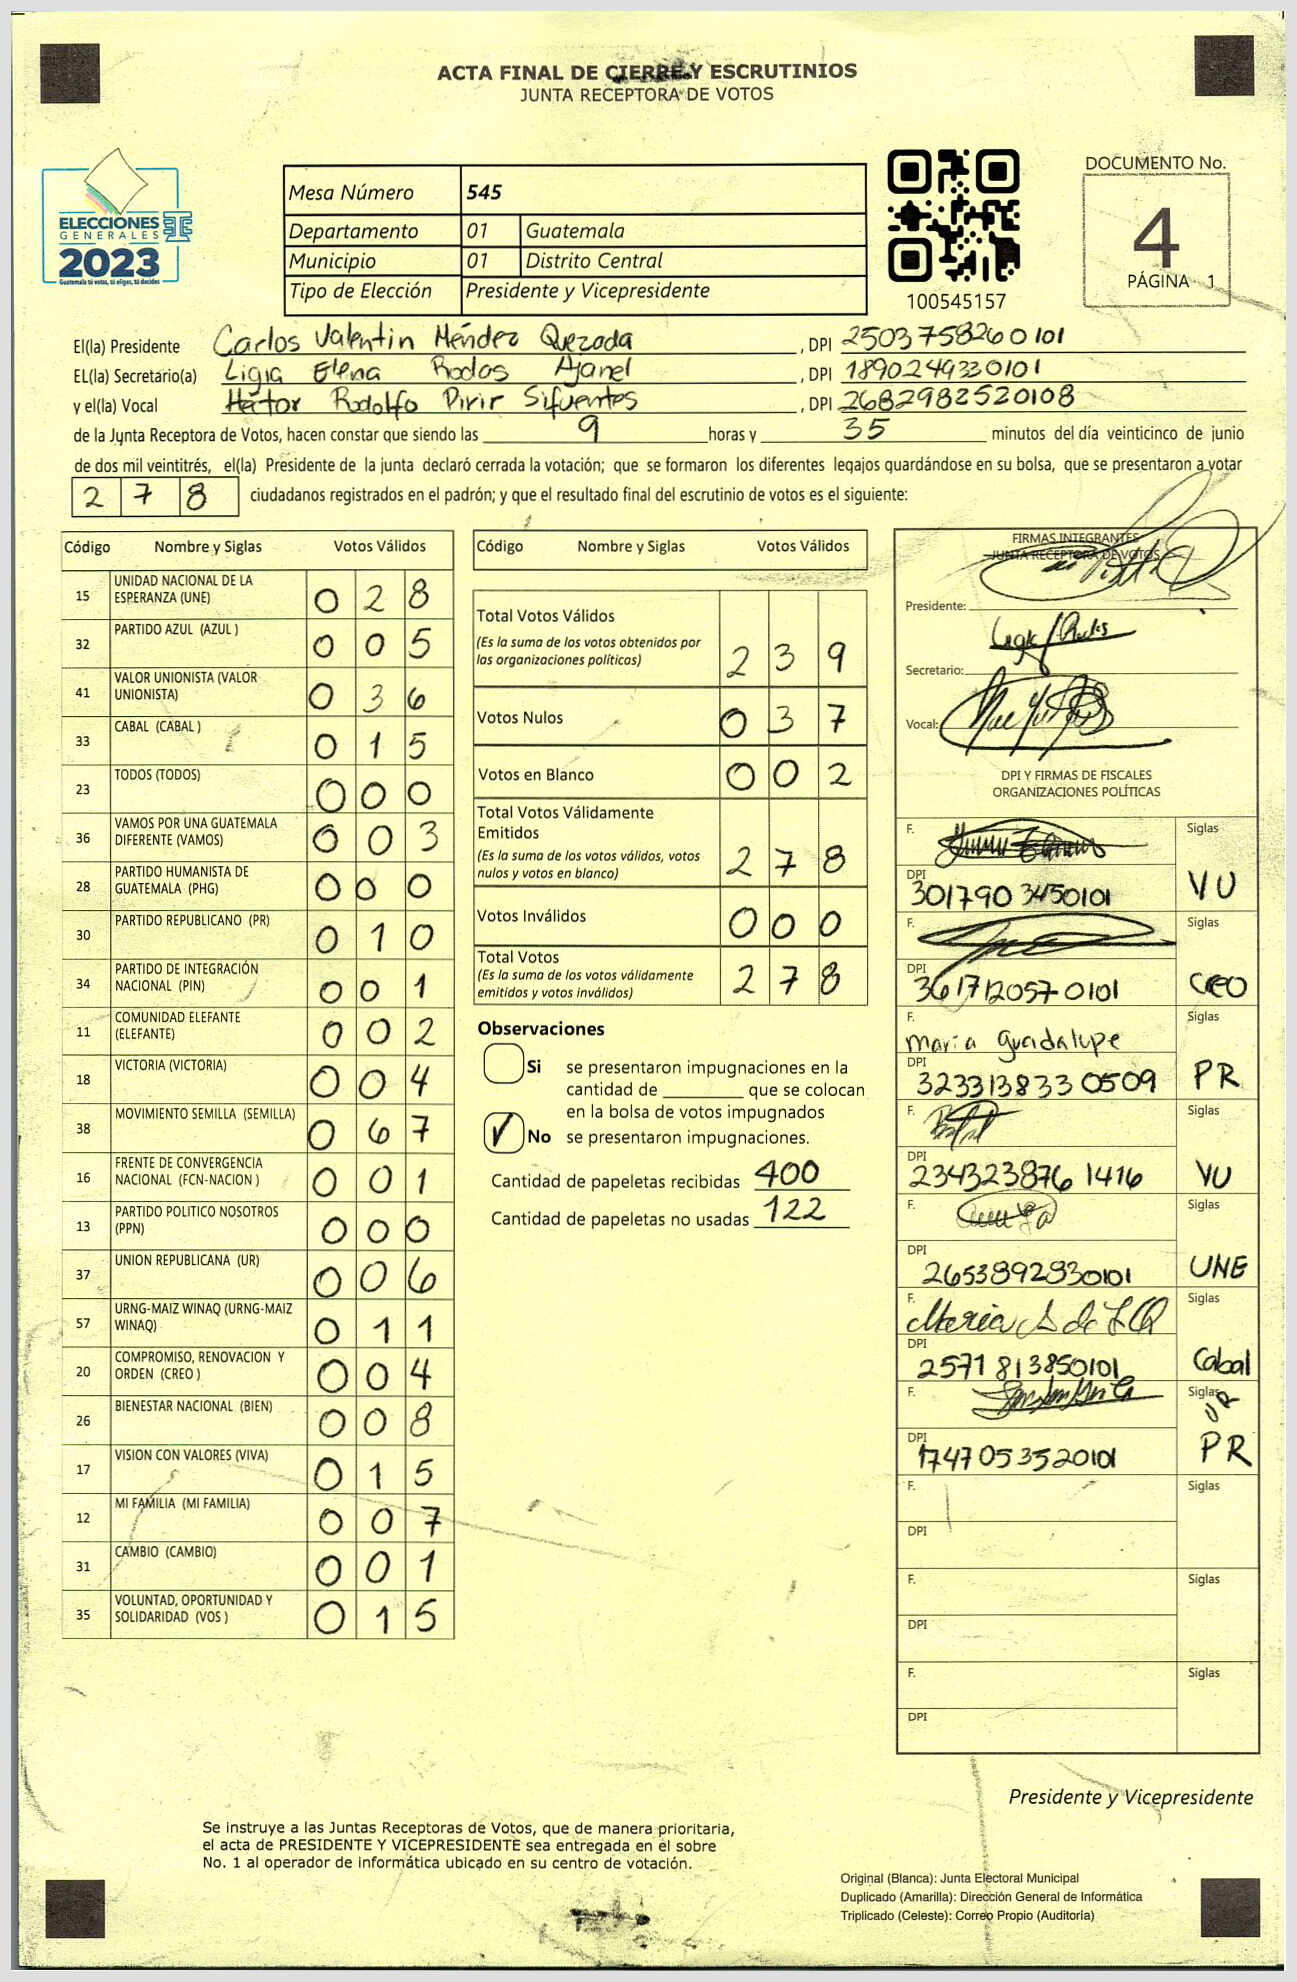 ACTA FINAL DE CIERRE Y ESCRUTINIOS
JUNTA RECEPTORA DE VOTOS
ELECCIONES
GENERALES
2023
Guatemala tú votas, tú eliges, tú decides
Mesa Número 545
Departamento 01 Guatemala
Municipio 01 Distrito Central
Tipo de Elección Presidente y Vicepresidente
100545157
DOCUMENTO No.
4
PÁGINA 1
El(la) Presidente Carlos Valentin Méndez Quezada , DPI 2503758260101
EL(la) Secretario(a) Ligia Elena Rodas Ajanel , DPI 1890249330101
y el(la) Vocal Héctor Rodolfo Pirir Sifuentes , DPI 2682982520108
de la Junta Receptora de Votos, hacen constar que siendo las 9 horas y 35 minutos del día veinticinco de junio
de dos mil veintitrés, el(la) Presidente de la junta declaró cerrada la votación; que se formaron los diferentes legajos guardándose en su bolsa, que se presentaron a votar
278 ciudadanos registrados en el padrón; y que el resultado final del escrutinio de votos es el siguiente:
Código Nombre y Siglas Votos Válidos
15 UNIDAD NACIONAL DE LA ESPERANZA (UNE) 028
32 PARTIDO AZUL (AZUL ) 005
41 VALOR UNIONISTA (VALOR UNIONISTA) 036
33 CABAL (CABAL ) 015
23 TODOS (TODOS) 000
36 VAMOS POR UNA GUATEMALA DIFERENTE (VAMOS) 003
28 PARTIDO HUMANISTA DE GUATEMALA (PHG) 000
30 PARTIDO REPUBLICANO (PR) 010
34 PARTIDO DE INTEGRACIÓN NACIONAL (PIN) 001
11 COMUNIDAD ELEFANTE (ELEFANTE) 002
18 VICTORIA (VICTORIA) 004
38 MOVIMIENTO SEMILLA (SEMILLA) 067
16 FRENTE DE CONVERGENCIA NACIONAL (FCN-NACION ) 001
13 PARTIDO POLITICO NOSOTROS (PPN) 000
37 UNION REPUBLICANA (UR) 006
57 URNG-MAIZ WINAQ (URNG-MAIZ WINAQ) 011
20 COMPROMISO, RENOVACION Y ORDEN (CREO ) 004
26 BIENESTAR NACIONAL (BIEN) 008
17 VISION CON VALORES (VIVA) 015
12 MI FAMILIA (MI FAMILIA) 007
31 CAMBIO (CAMBIO) 001
35 VOLUNTAD, OPORTUNIDAD Y SOLIDARIDAD (VOS ) 015
Código Nombre y Siglas Votos Válidos
Total Votos Válidos
(Es la suma de los votos obtenidos por
las organizaciones políticas) 239
Votos Nulos 037
Votos en Blanco 002
Total Votos Válidamente
Emitidos
(Es la suma de los votos válidos, votos
nulos y votos en blanco) 278
Votos Inválidos 000
Total Votos
(Es la suma de los votos válidamente
emitidos y votos inválidos) 278
Observaciones
Si se presentaron impugnaciones en la
cantidad de ________ que se colocan
en la bolsa de votos impugnados
No se presentaron impugnaciones.
Cantidad de papeletas recibidas 400
Cantidad de papeletas no usadas 122
FIRMAS INTEGRANTES
JUNTA RECEPTORA DE VOTOS
Presidente:
Secretario:
Vocal:
DPI Y FIRMAS DE FISCALES
ORGANIZACIONES POLÍTICAS
F. Siglas
DPI 3017903450101 VU
F. Siglas
DPI 3617120570101 CREO
F. Maria Guadalupe Siglas
DPI 3233138330509 PR
F. Siglas
DPI 2343238761416 VU
F. Siglas
DPI 2653892830101 UNE
F. Maria Siglas
DPI 2571813850101 Cabal
F. Siglas UR
DPI 1747053520101 PR
F. Siglas
DPI
F. Siglas
DPI
F. Siglas
DPI
Presidente y Vicepresidente
Se instruye a las Juntas Receptoras de Votos, que de manera prioritaria,
el acta de PRESIDENTE Y VICEPRESIDENTE sea entregada en el sobre
No. 1 al operador de informática ubicado en su centro de votación.
Original (Blanca): Junta Electoral Municipal
Duplicado (Amarilla): Dirección General de Informática
Triplicado (Celeste): Correo Propio (Auditoría)